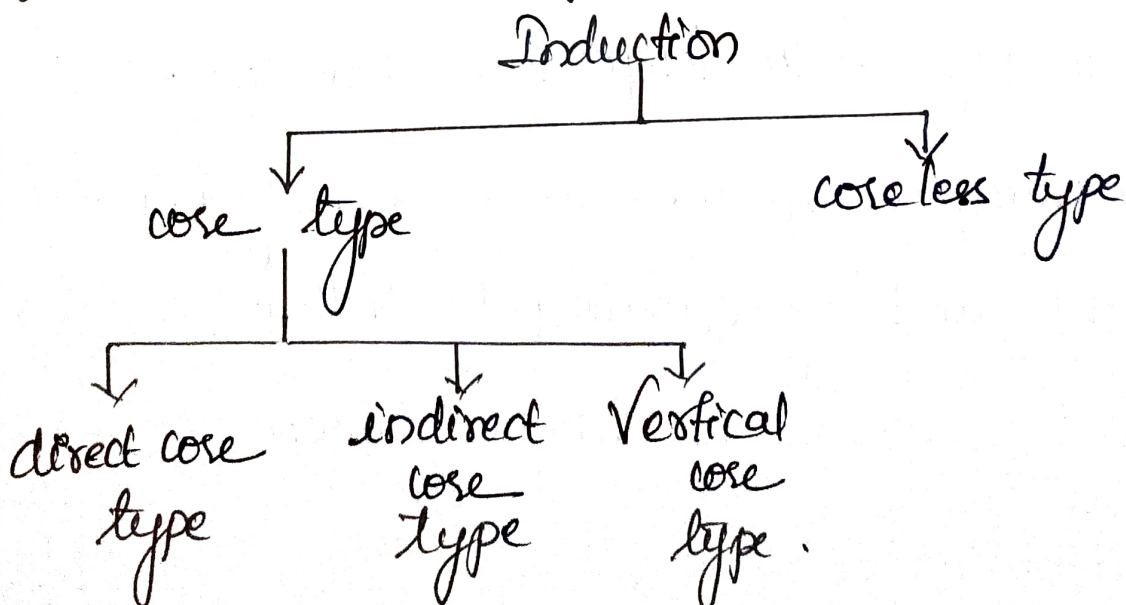 Induction
core type
coreless type
direct core
type
indirect
core
type
Vertical
core
type.